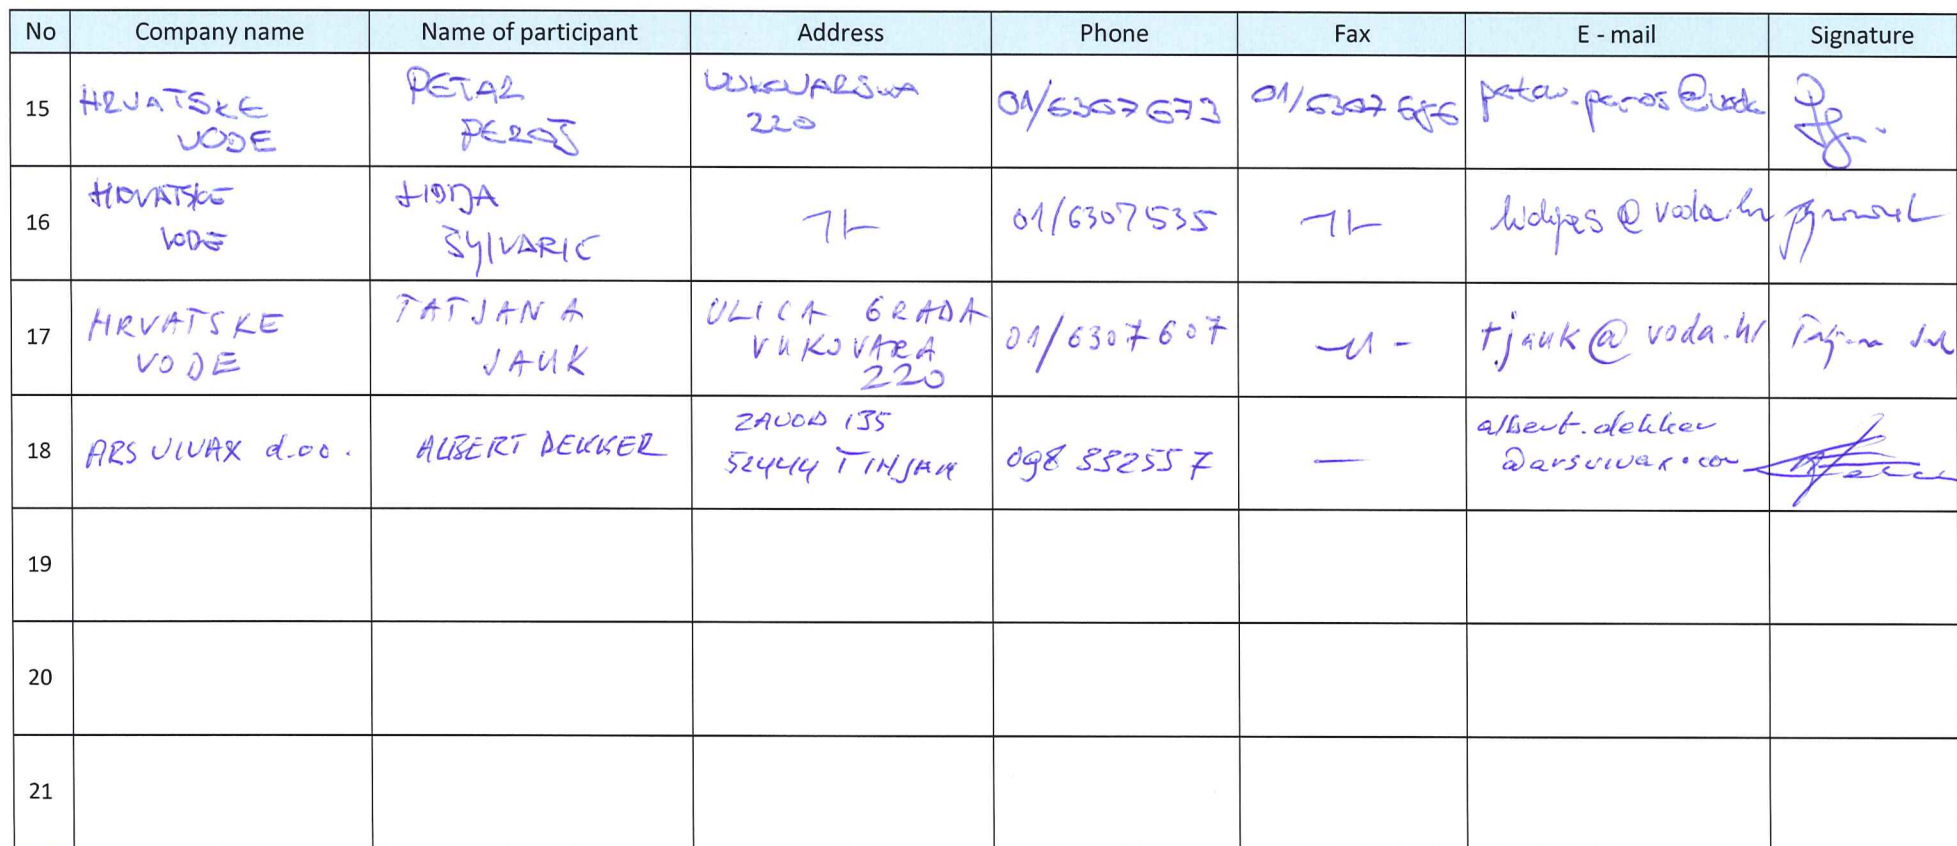 No Company name Name of participant Address Phone Fax E - mail Signature
15 HRVATSKE VODE PETAR PEROŠ VUKOVARSKA 220 01/6307673 01/6307 petar.peros@voda
16 HRVATSKE VODE LIDIJA 01/6307535 @voda.hr
17 HRVATSKE VODE TATJANA JAUK ULICA GRADA VUKOVARA 220 01/6307607 -11- tjauk@voda.hr
18 ARS VIVAX d.oo. ALBERT DEKKER ZAVOD 135 52444 TINJAN 098 332557 — albert.dekker @arsvivax.com
19
20
21